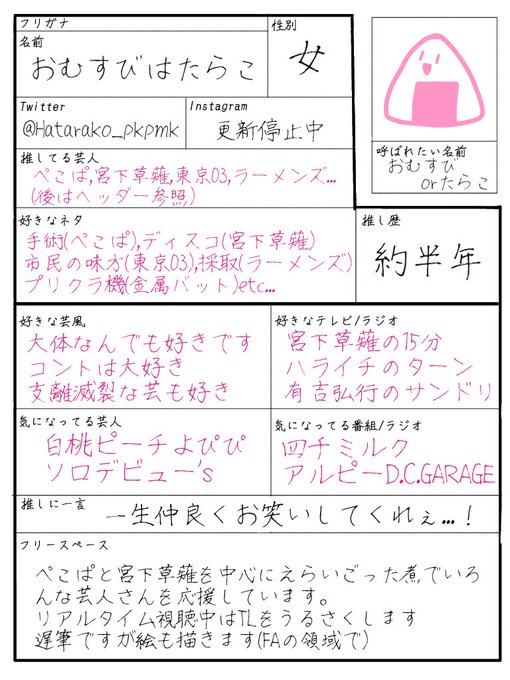 フリガナ
名前
おむすびはたらこ
性別
女
Twitter
@Hatarako_pkpmk
Instagram
更新停止中
呼ばれたい名前
おむすび
orたらこ
推してる芸人
ぺこぱ,宮下草薙,東京03,ラーメンズ...
(後はヘッダー参照)
好きなネタ
手術(ぺこぱ),ディスコ(宮下草薙)
市民の味方(東京03),採取(ラーメンズ)
プリクラ機(金属バット)etc...
推し歴
約半年
好きな芸風
大体なんでも好きです
コントは大好き
支離滅裂な芸も好き
好きなテレビ/ラジオ
宮下草薙の15分
ハライチのターン
有吉弘行のサンドリ
気になってる芸人
白桃ピーチよぴぴ
ソロデビュー's
気になってる番組/ラジオ
四千ミルク
アルピーD.C.GARAGE
推しに一言
一生仲良くお笑いしてくれぇ...!
フリースペース
ぺこぱと宮下草薙を中心にえらいごった煮でいろ
んな芸人さんを応援しています。
リアルタイム視聴中はTLをうるさくします
遅筆ですが絵も描きます(FAの領域で)